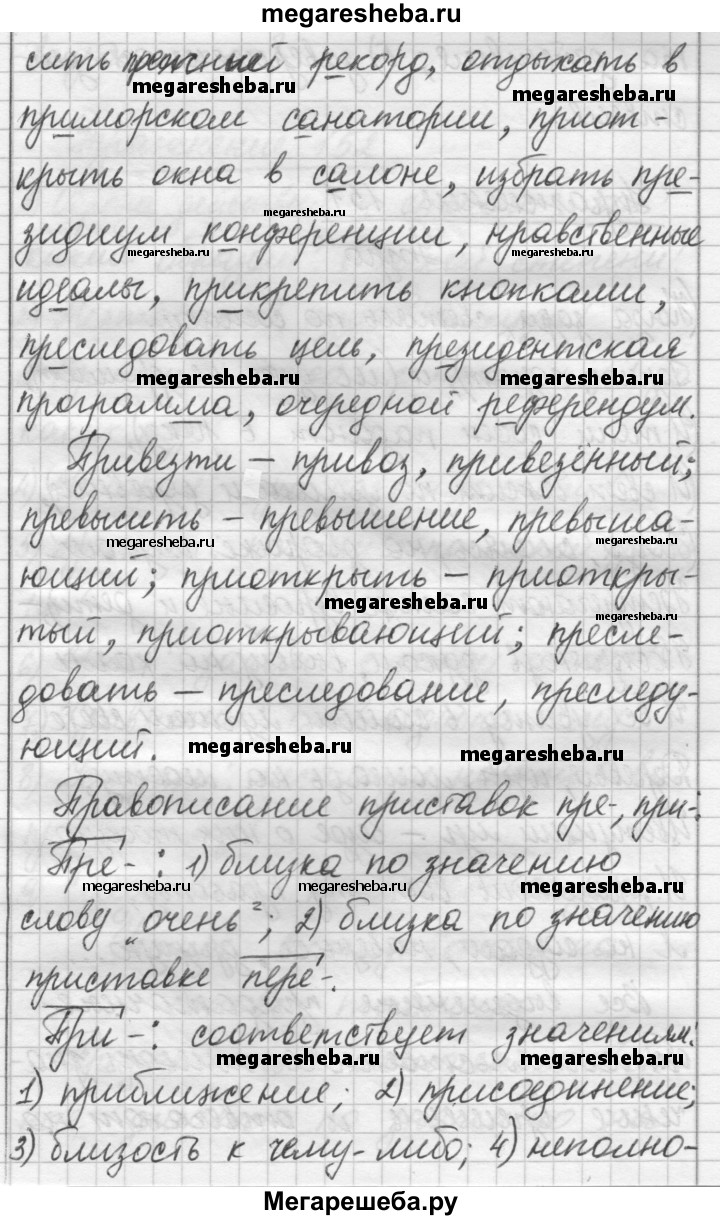 megaresheba.ru
сить прежний рекорд, отдыхать в
megaresheba.ru
megaresheba.ru
приморском санатории, приот-
крыть окна в салоне, избрать пре-
megaresheba.ru
зидиум конференции, нравственные
megaresheba.ru
megaresheba.ru
идеалы, прикрепить кнопками,
преследовать цель, президентская
megaresheba.ru
megaresheba.ru
программа, очередной референдум.
Привезти – привоз, привезённый;
превысить – превышение, превыша-
megaresheba.ru
megaresheba.ru
ющий; приоткрыть – приоткры-
megaresheba.ru
megaresheba.ru
тый, приоткрывающий; пресле-
довать – преследование, преследу-
ющий.
megaresheba.ru
megaresheba.ru
Правописание приставок пре-, при-:
Пре- : 1) близка по значению
megaresheba.ru
megaresheba.ru
megaresheba.ru
слову „очень"; 2) близка по значению
приставке пере-.
При-: соответствует значениям:
megaresheba.ru
megaresheba.ru
1) приближение; 2) присоединение;
3) близость к чему-либо; 4) неполно-
Мегарешеба.ру